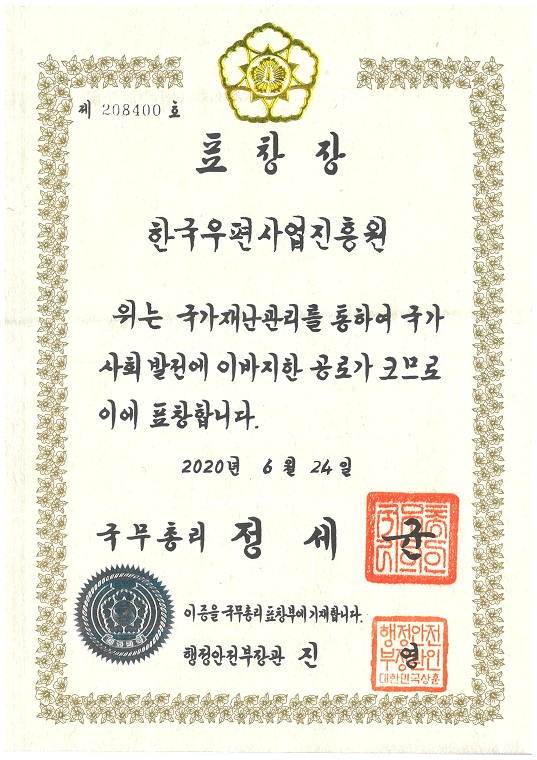 제 208400 호
표 창 장
한국우편사업진흥원
위는 국가재난관리를 통하여 국가
사회 발전에 이바지한 공로가 크므로
이에 표창합니다.
2020년 6 월 24 일
국무총리 정 세 균
이 증을 국무총리 표창부에 기재합니다.
행정안전부장관 진 영
행정안전
부장관인
대한민국상훈